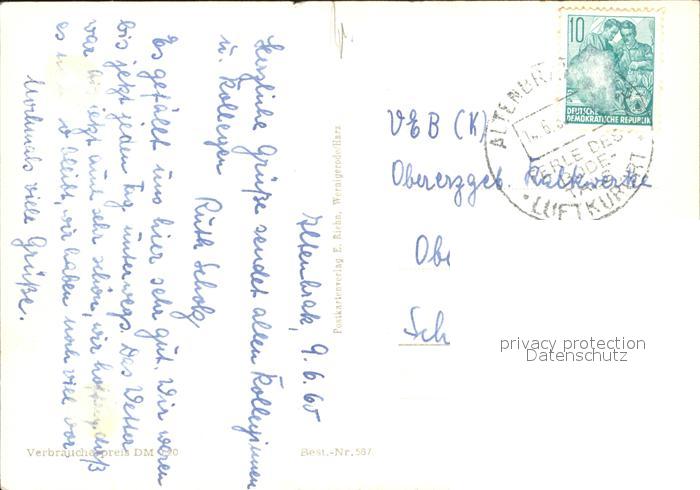 Altenbrak, 9.6.60
Herzliche Grüße sendet allen Kolleginnen
u. Kollegen Ruth Scholz
Es gefällt uns hier sehr gut. Wir waren
bis jetzt jeden Tag unterwegs. Das Wetter
war bis jetzt auch sehr schön, wir hoffen, daß
es so bleibt, wir haben noch viel vor.
Nochmals viele Grüße.
Verbraucherpreis DM 0,20
Best.-Nr. 587
Postkartenverlag E. Riehn, Wernigerode/Harz
10
DEUTSCHE
DEMOKRATISCHE REPUBLIK
ALTENBRAK
PERLE DES
BODE-
TALES
LUFTKURORT
VEB (K)
Obererzgeb. Kalkwerke
Obe
Sch
privacy protection
Datenschutz